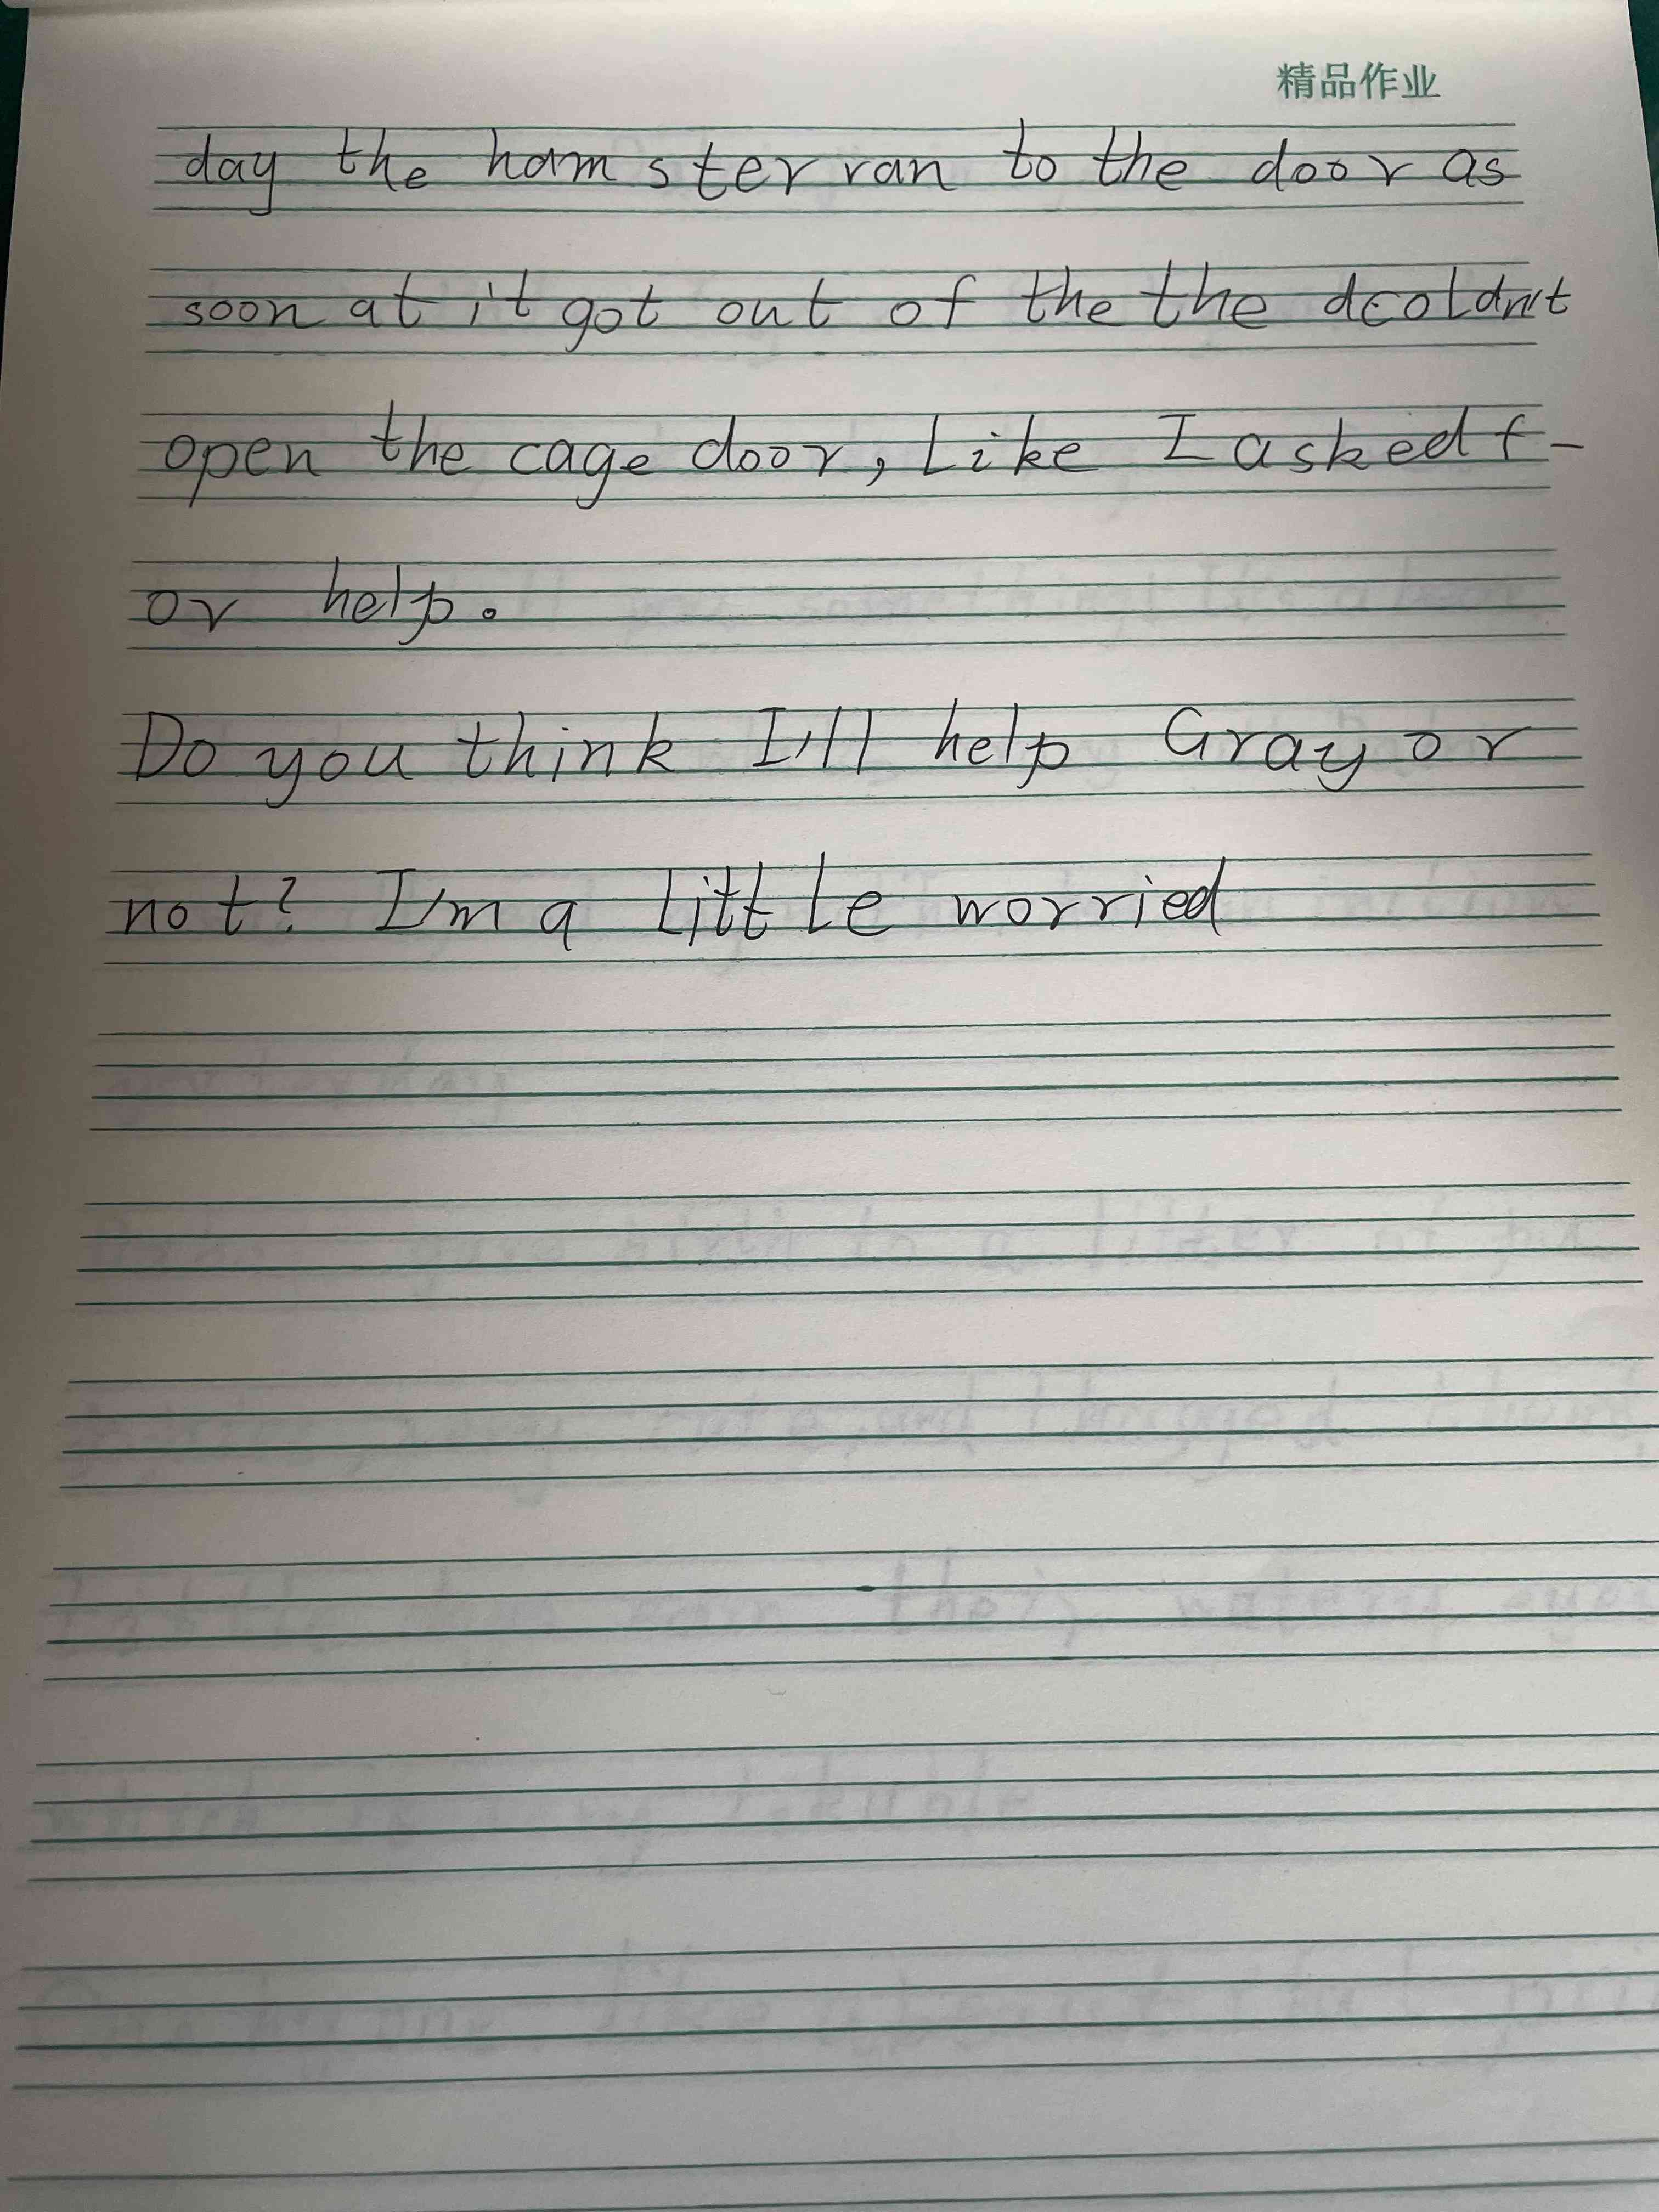 精品作业
day the hamster ran to the door as
soon at it got out of the the dcoldn't
open the cage door, Like I asked f-
or help.
Do you think I'll help Gray or
not? I'm a little worried